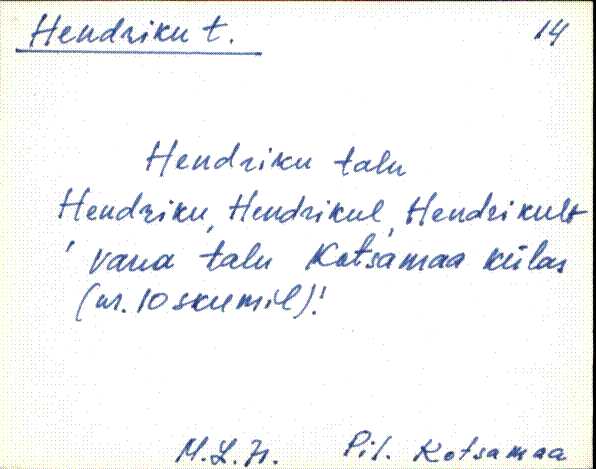 Hendriku t. 14
Hendriku talu
Hendriku, Hendrikul, Hendrikult
' vana talu Kotsamaa külas
(nr. 10 skeemil)!
Pil. Kotsamaa